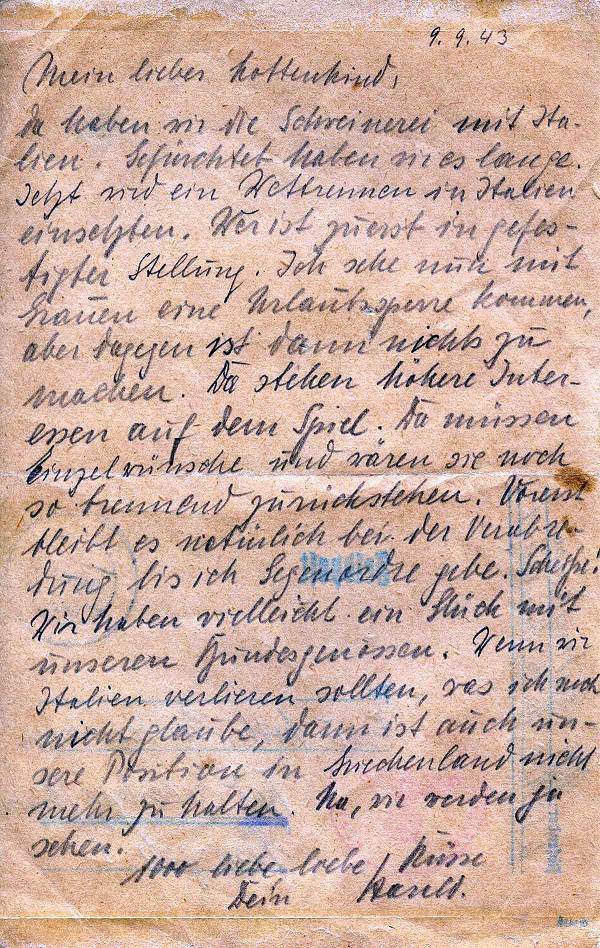 9. 9. 43
Mein liebes Mottenkind,
da haben wir die Schweinerei mit Ita-
lien. Gefürchtet haben wir es lange.
Jetzt wird ein Wettrennen in Italien
einsetzten. Wer ist zuerst in gefes-
tigter Stellung. Ich sehe nun mit
Grauen eine Urlaubssperre kommen,
aber dagegen ist dann nichts zu
machen. Da stehen höhere Inter-
essen auf dem Spiel. Da müssen
Einzelwünsche und wären sie noch
so brennend zurückstehen. Vorerst
bleibt es natürlich bei der Verabre-
dung bis ich Gegenordre gebe. Scheiße!
Wir haben vielleicht ein Glück mit
unseren Bundesgenossen. Wenn wir
Italien verlieren sollten, was ich noch
nicht glaube, dann ist auch un-
sere Position in Griechenland nicht
mehr zu halten. Na, wir werden ja
sehen.
1000 liebe liebe Küsse
Dein Harald.